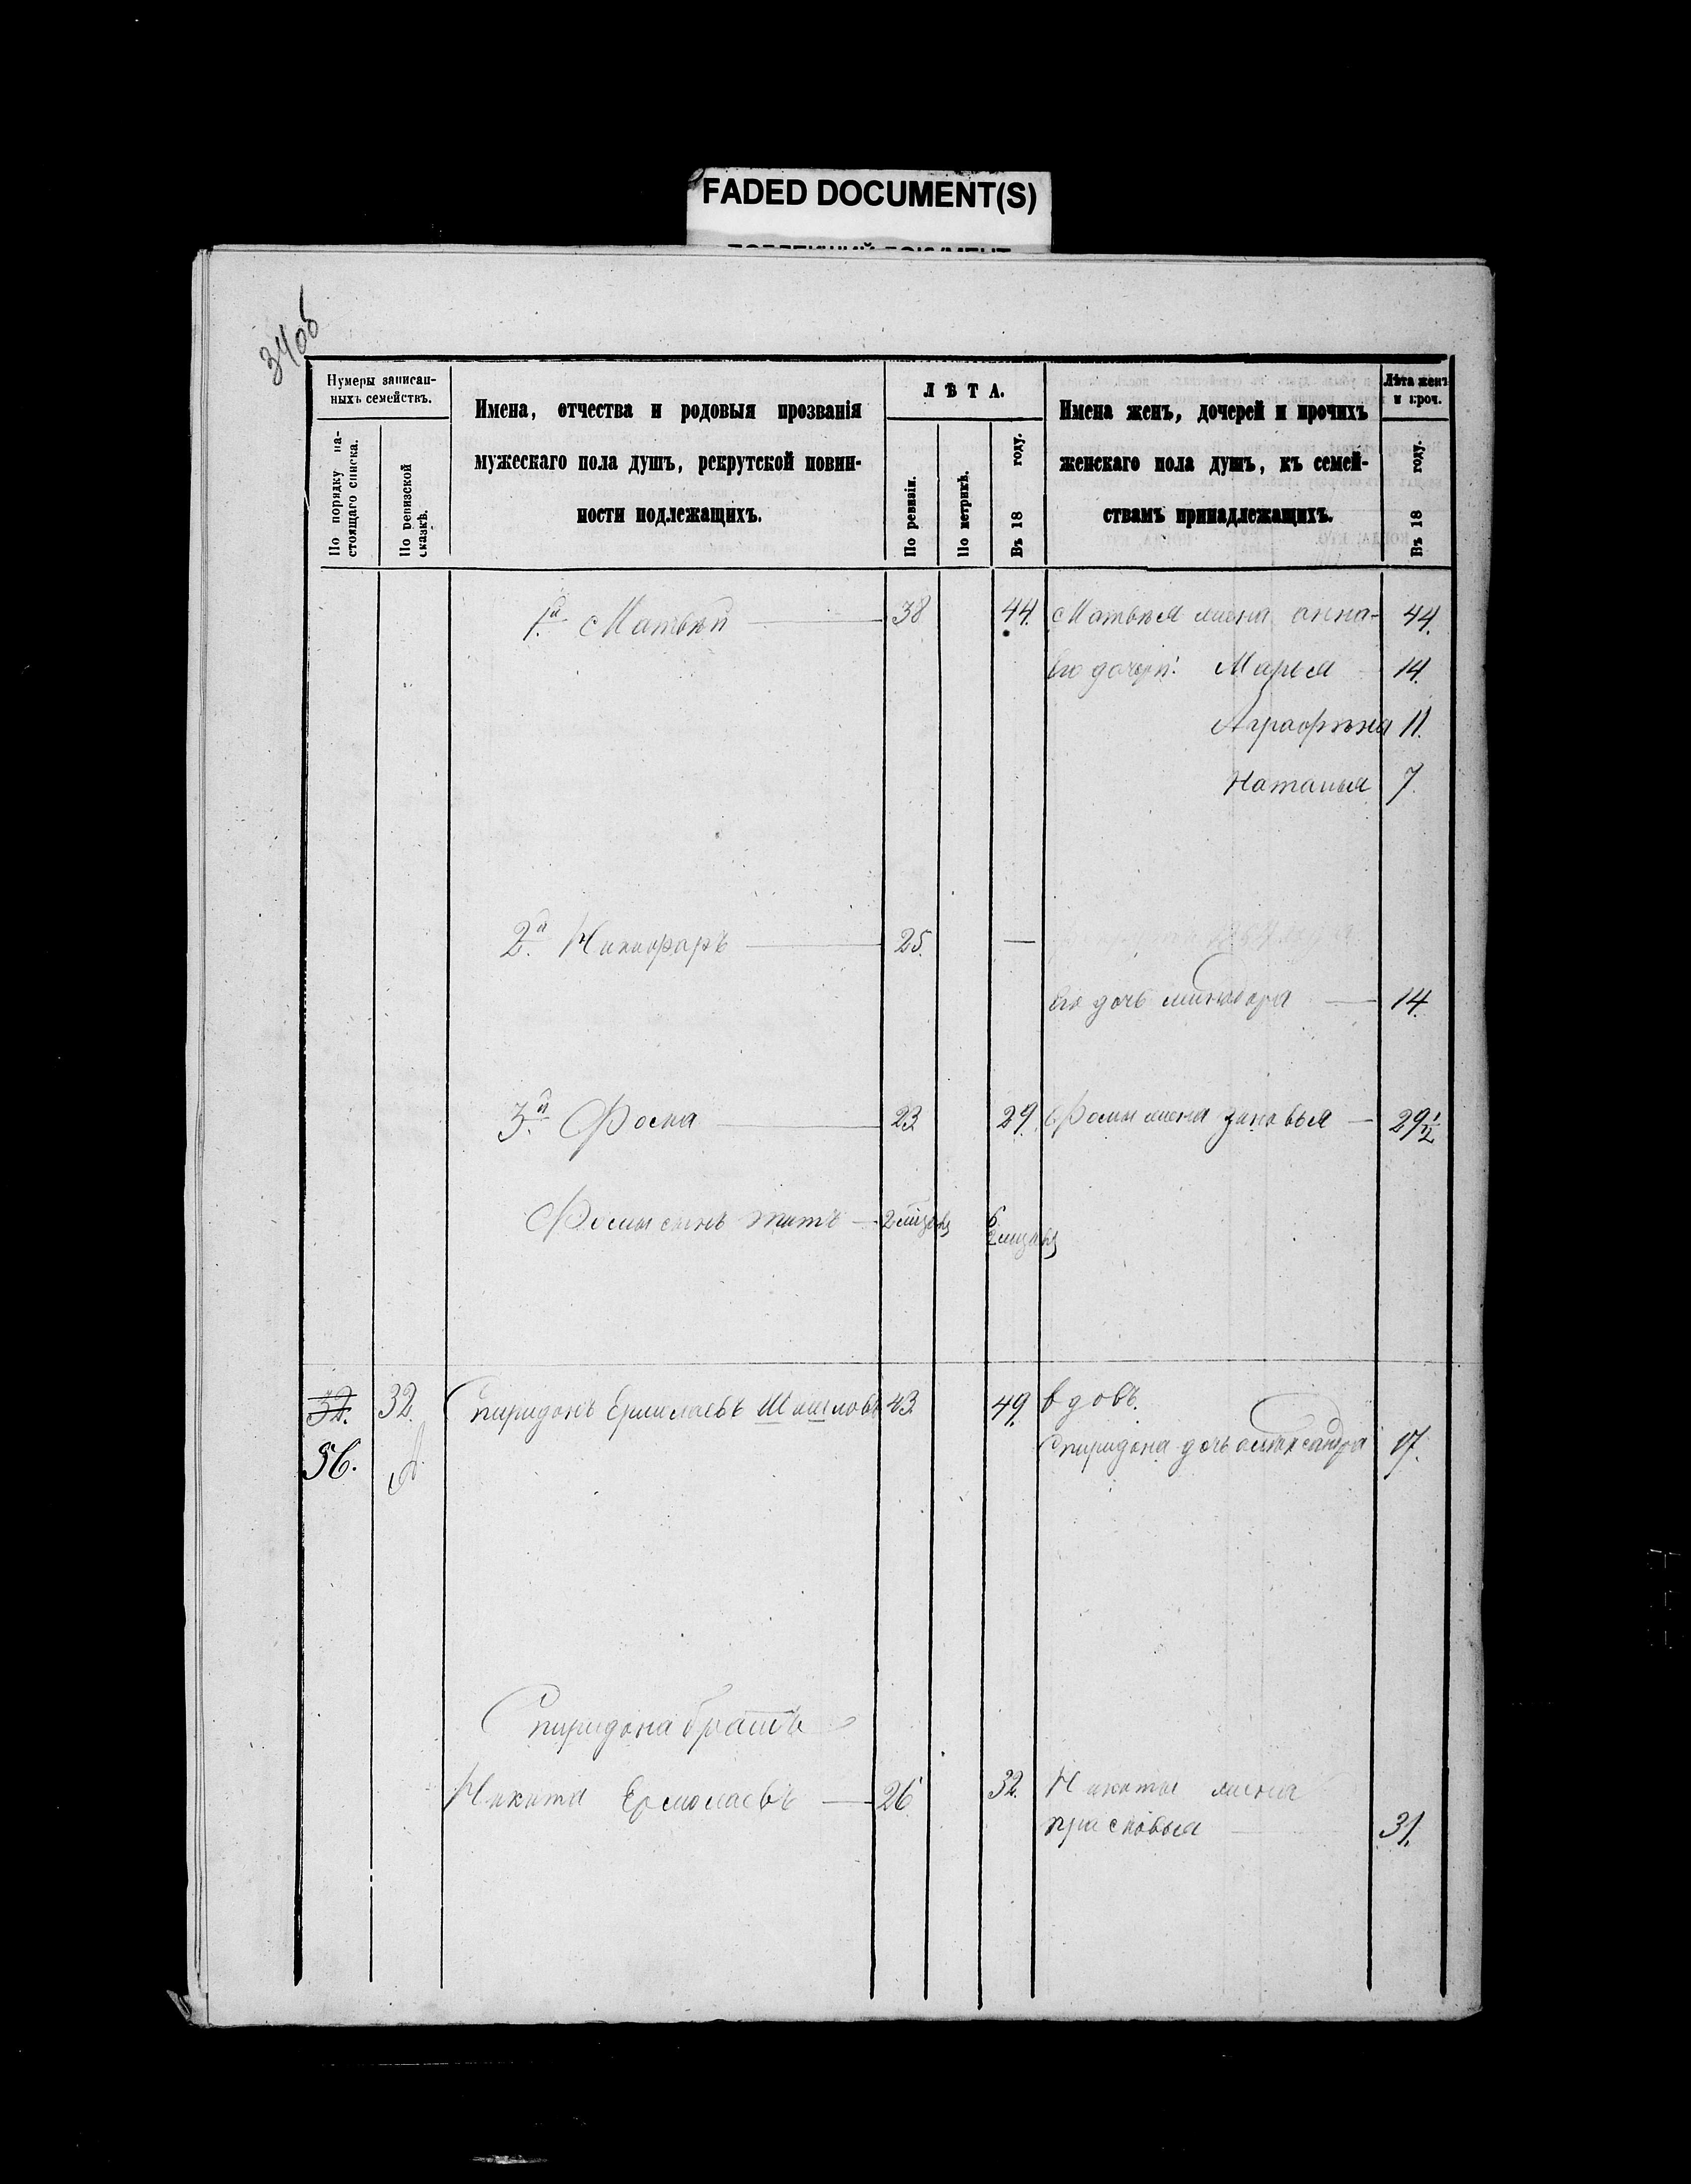 FADED DOCUMENT(S)
34об
Нумеры записан-
ныхъ семействъ.
По порядку на-
стоящаго списка.
По ревизской
сказкѣ.
Имена, отчества и родовыя прозванія
мужескаго пола душъ, рекрутской повин-
ности подлежащихъ.
ЛѢТА.
По ревизіи.
По метрикѣ.
Въ 18 году.
Имена женъ, дочерей и прочихъ
женскаго пола душъ, къ семей-
ствамъ принадлежащихъ.
Лѣта женъ
и проч.
Въ 18 году.
1.й Матвѣй 38 44. Матвѣя жена анна 44.
его дочери: Марья 14.
Аграфѣна 11.
Наталья 7.
2.й Никифаръ 25. —
его дочь 14.
3.й Фома 23 29. Фомы жена зиновья 29 1/2
Фомы сынъ титъ 2 6
32. 32. Спиридонъ Ермолаевъ 43. 49. вдовъ.
56. Спиридона дочь александра 17.
Спиридона братъ
Никита Ермолаевъ 26 32. Никиты жена
прасковья 31.